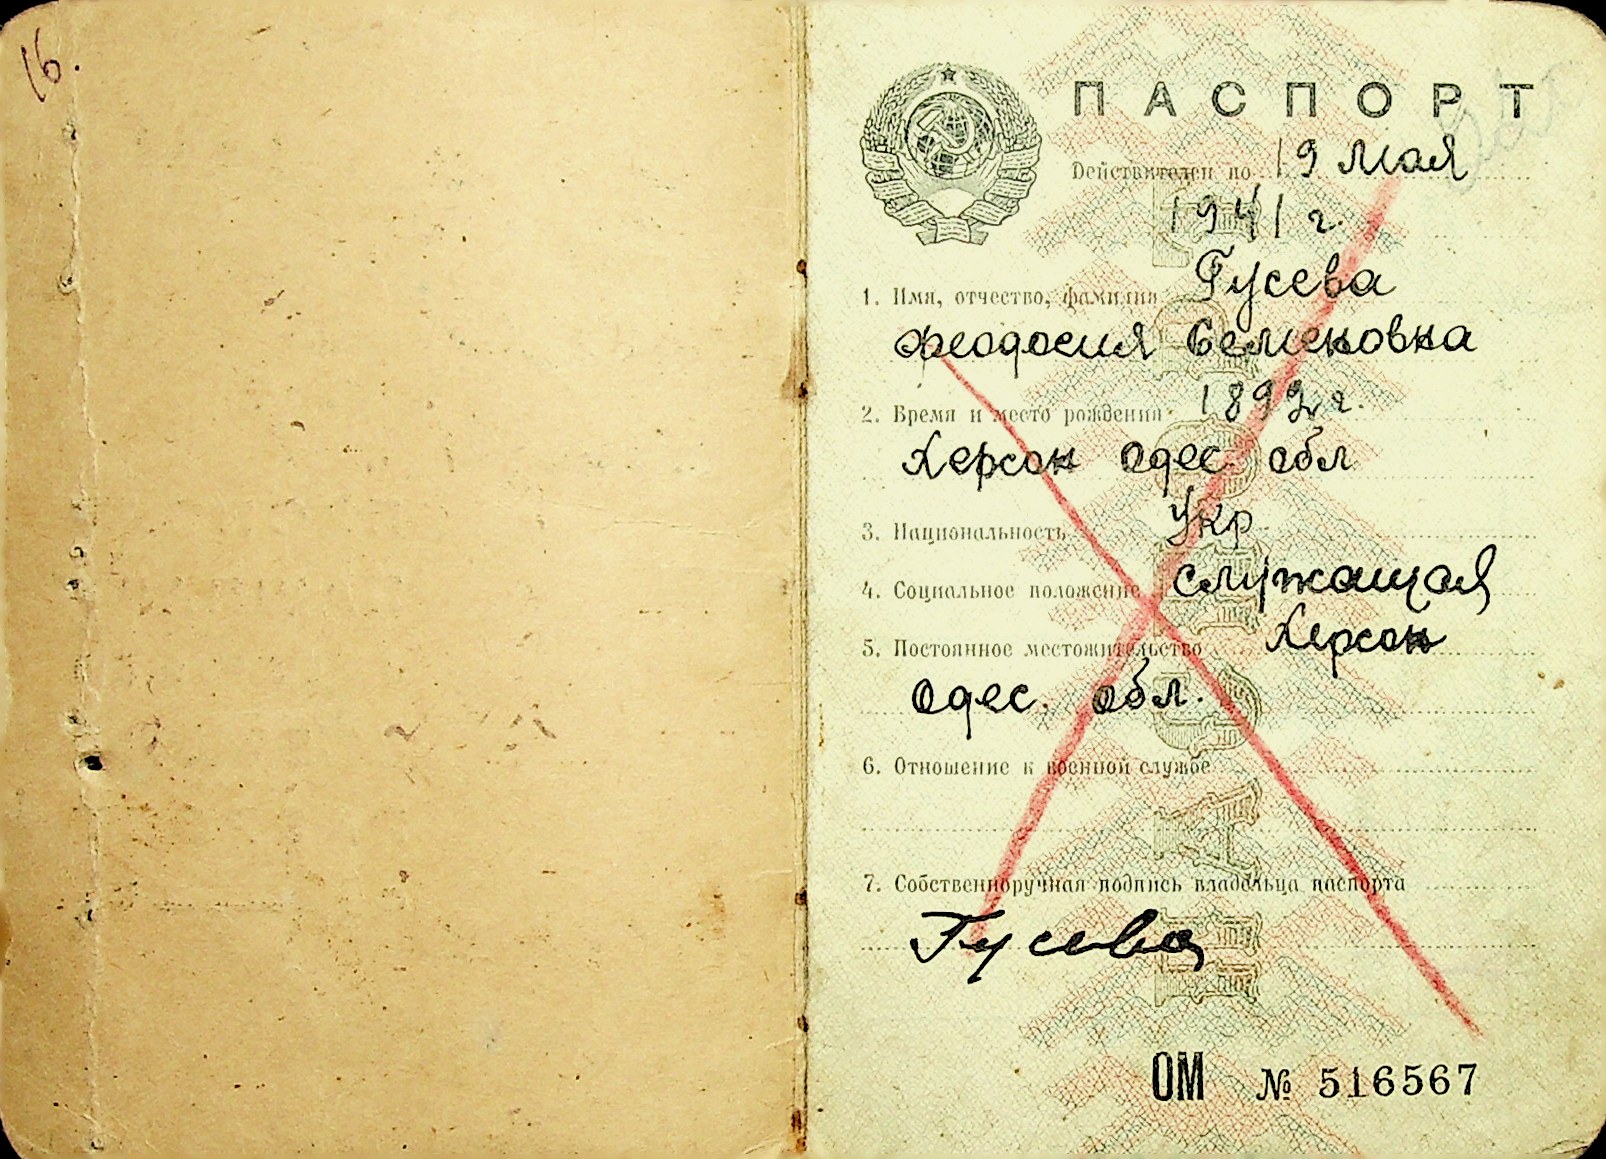 16.
ПАСПОРТ
Действителен по 19 мая
1941 г.
1. Имя, отчество, фамилия Гусева
Феодосия Семеновна
2. Время и место рождения 1892 г.
Херсон Одес. обл
3. Национальность Укр
4. Социальное положение служащая
5. Постоянное местожительство Херсон
Одес. обл.
6. Отношение к военной службе
7. Собственноручная подпись владельца паспорта
Гусева
ОМ № 516567